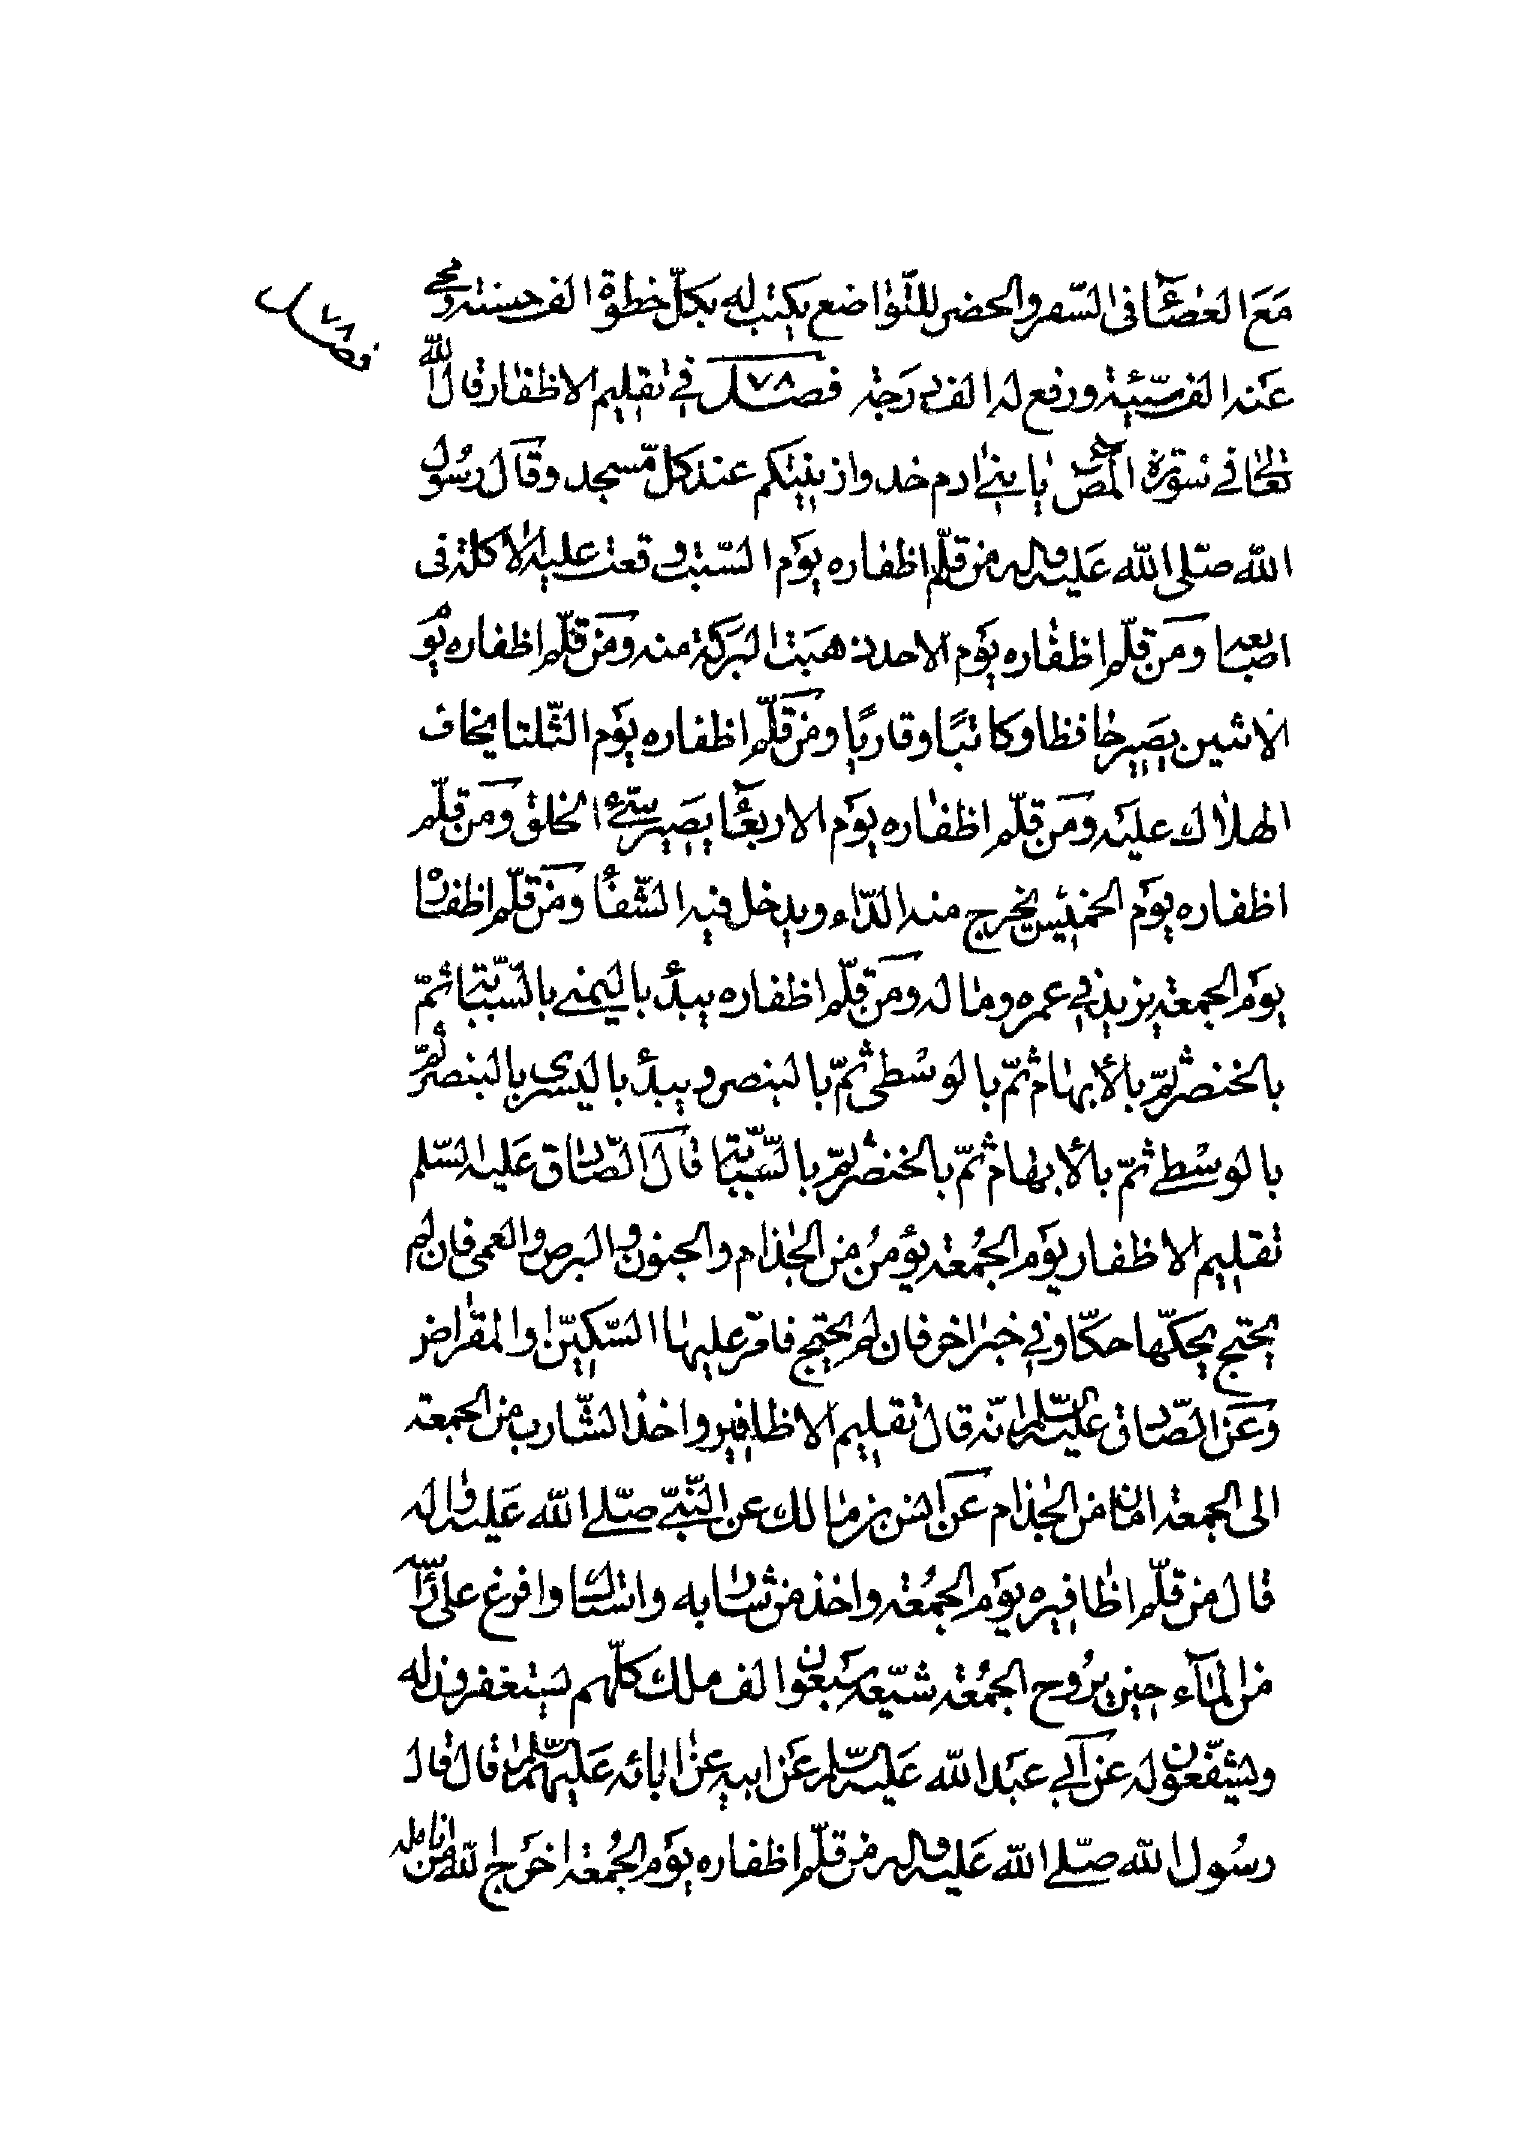 مَعَ العصَا فى السّفر والحضر للتّواضع يكتب له بكلّ خطوة الف حسنته ومحى
عَنه الف سّيئة ورفع له الف دَرجة فصل ٧٨ في تقليم الاظفار قال الله
تعالى في سورة المص يا بنى ادم خذوا زينتكم عند كلّ مّسجد وقَال رسُول
الله صلّى الله عَليه واله من قلّم اظفاره يوَم السّبت وقعت عليه الاكلة فى
اصابعه ومَن قلّم اظفاره يوَم الاحد ذهبَت البَركة منه ومَن قلّم اظفاره يوَم
الاثنين يصَير حافظا وكاتبًا وقاريًا ومَن قلّم اظفاره يوَم الثّلثا يخاف
الهلاك عليَه ومَن قلّم اظفاره يوَم الاربعَا يصَير سيّئ الخلق ومَن قلّم
اظفاره يوَم الخميَس يخرج منه الدّاء ويدخل فيه الشّفاء ومَن قلّم اظفاره
يوَم الجمعة يزيد في عمره وماله ومَن قلّم اظفاره يبدأ باليمنى بالسّبّابة ثمّ
بالخنصر ثمّ بالأبهام ثمّ بالوسْطى ثمّ بالبنصر ويبدأ باليسرى بالبنصر ثمّ
بالوسْطى ثمّ بالأبهام ثمّ بالخنصر ثمّ بالسّبّابة قَالَ الصّادق عَليه السّلم
تقليم الاظفار يوَم الجُمُعة يؤمنُ من الجذام والجنون والبرص والعمى فان لم
يحتج يحكّها حكّا وفي خبر اخر فان لم يحتج فامرّ عليها السّكيّن او المقراض
وعَن الصّادق عليه السّلم انّه قال تقليم الاظافير واخذ الشّارب من الجمعة
الى الجمعة امان من الجذام عَن انس بن مالك عن النّبىّ صلّى الله عَليه واله
قال من قلّم اظافيره يوَم الجمُعة واخذ من شاربه واستاك وافرغ على رأسه
من الماء حين يرُوح الجمُعة شيّعه سَبعون الف ملك كلّهم يستغفرون له
ويشفّعون له عن اَبي عبَد الله عَليه السّلم عَن ابيه عن ابائه عَليهم السّلم قال قال
رسُول الله صلّى الله عَليه واله من قلّم اظفاره يوَم الجُمُعة اخرَج الله من انامله
فصل ٧٨